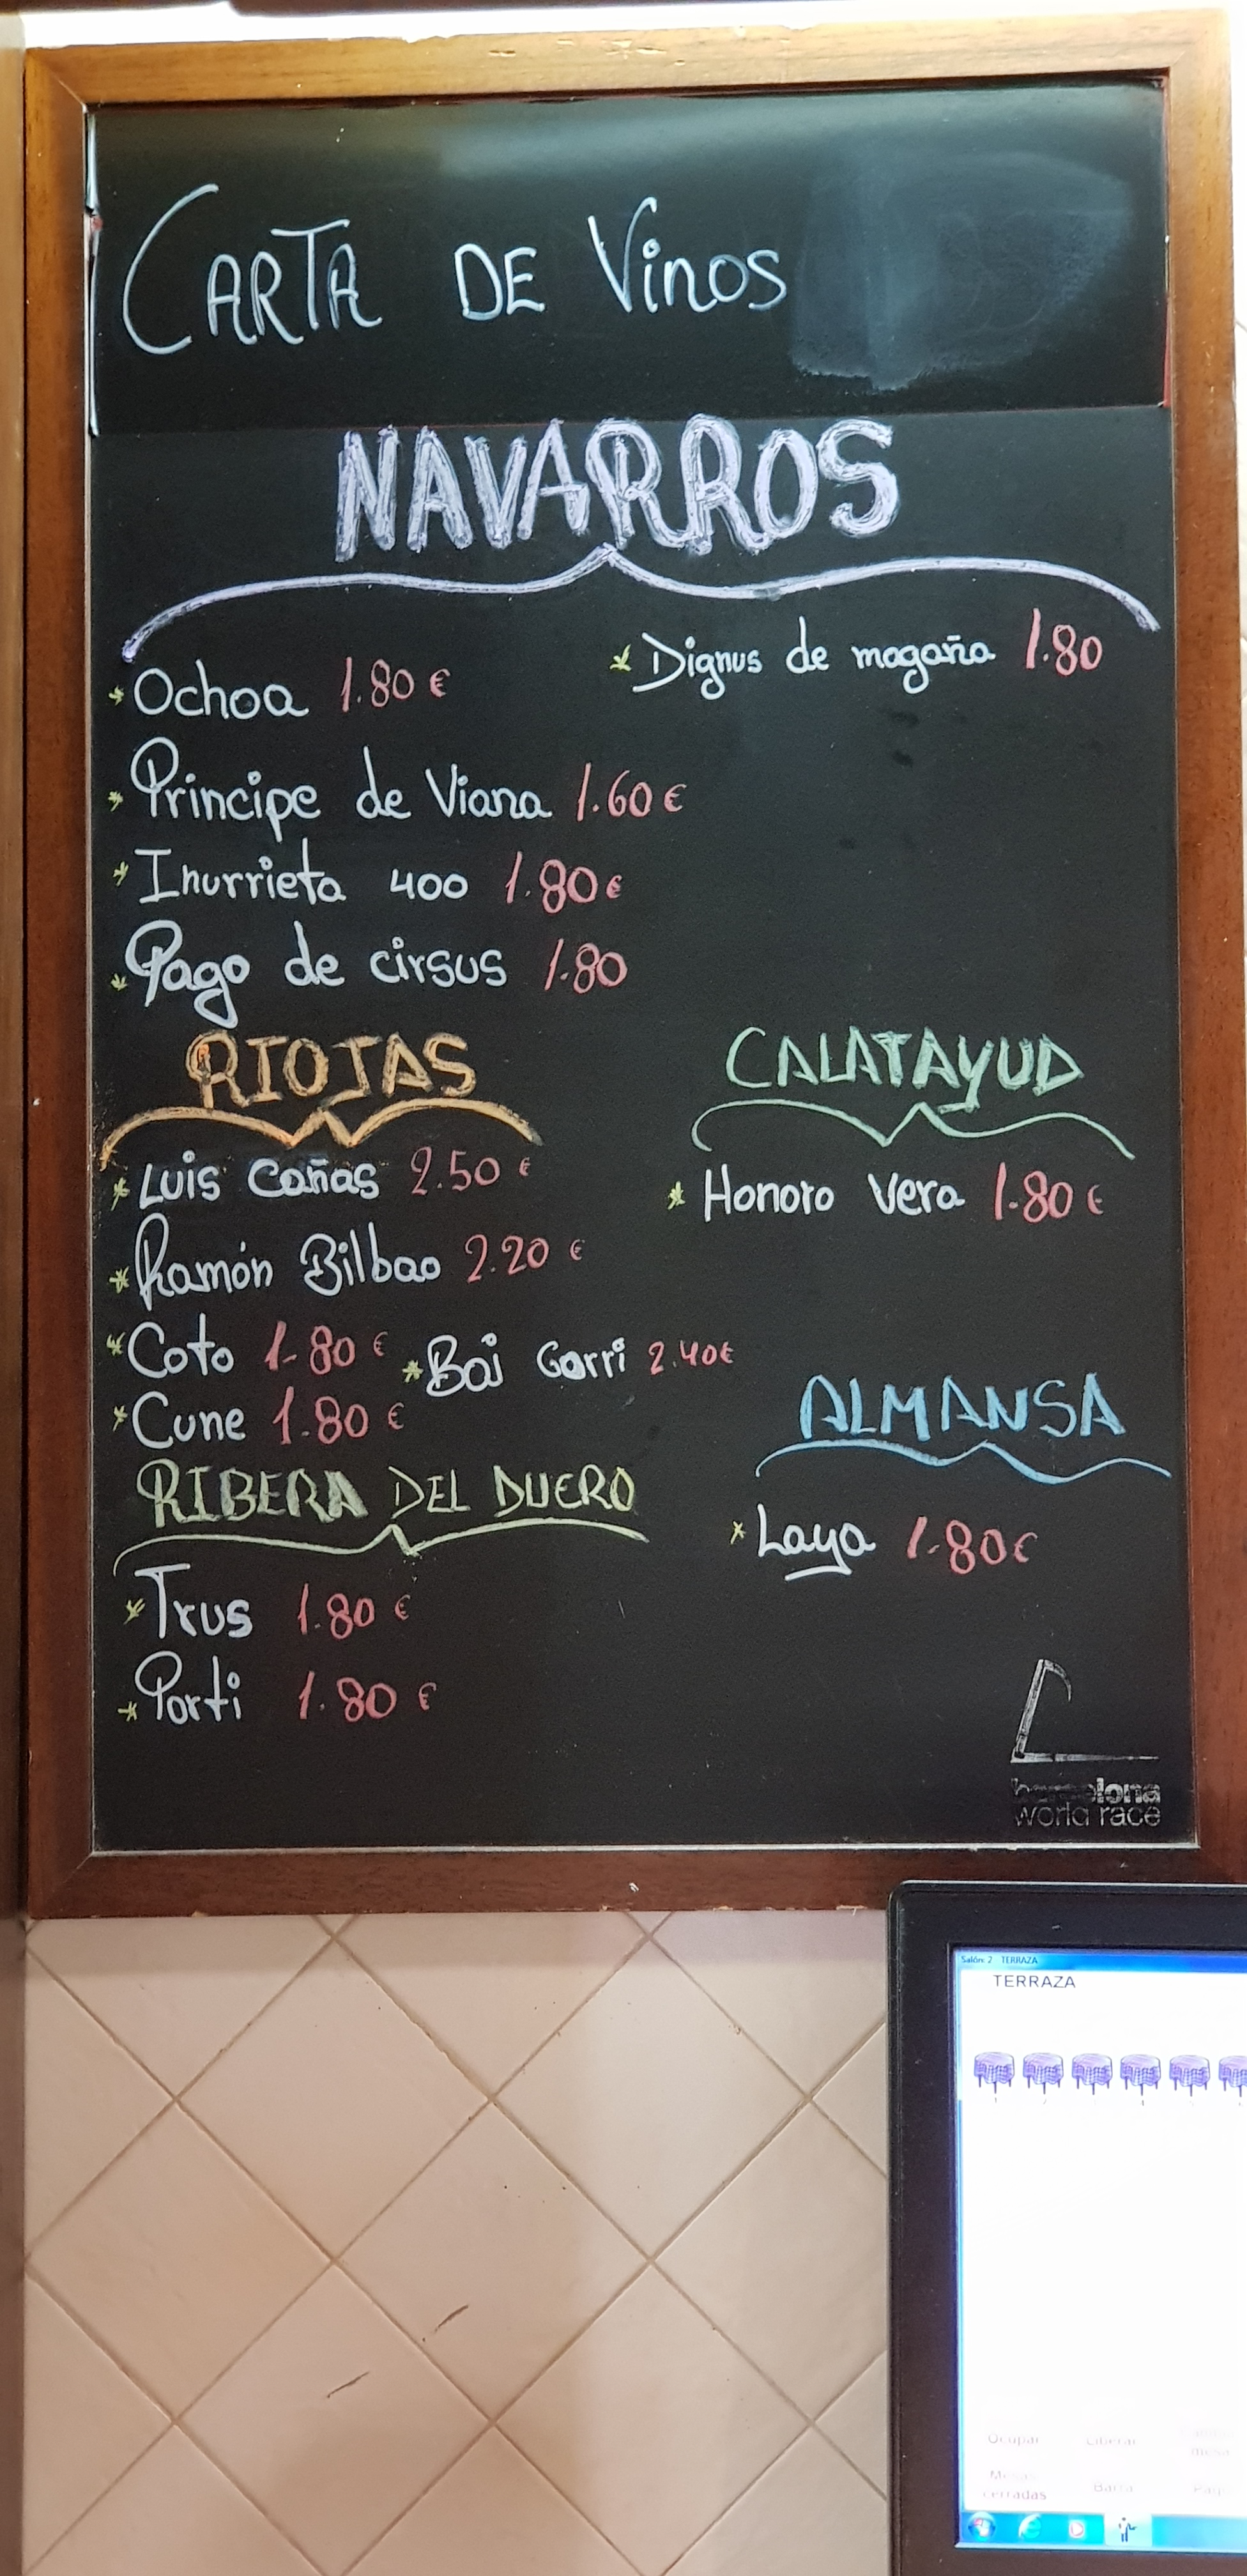 CARTA DE Vinos
NAVARROS
* Ochoa 1.80 €
* Dignus de magaña 1.80
* Principe de Viana 1.60 €
* Inurrieta 400 1.80 €
* Pago de cirsus 1.80
RIOJAS
* Luis Cañas 2.50 €
* Ramón Bilbao 2.20 €
* Coto 1.80 € * Bai Gorri 2.40€
* Cune 1.80 €
CALATAYUD
* Honoro Vera 1.80 €
ALMANSA
* Laya 1.80€
RIBERA DEL DUERO
* Trus 1.80 €
* Porti 1.80 €
barcelona
world race
Salón: 2 TERRAZA
TERRAZA
Ocupar Liberar
mesa
Mesas
cerradas Barra